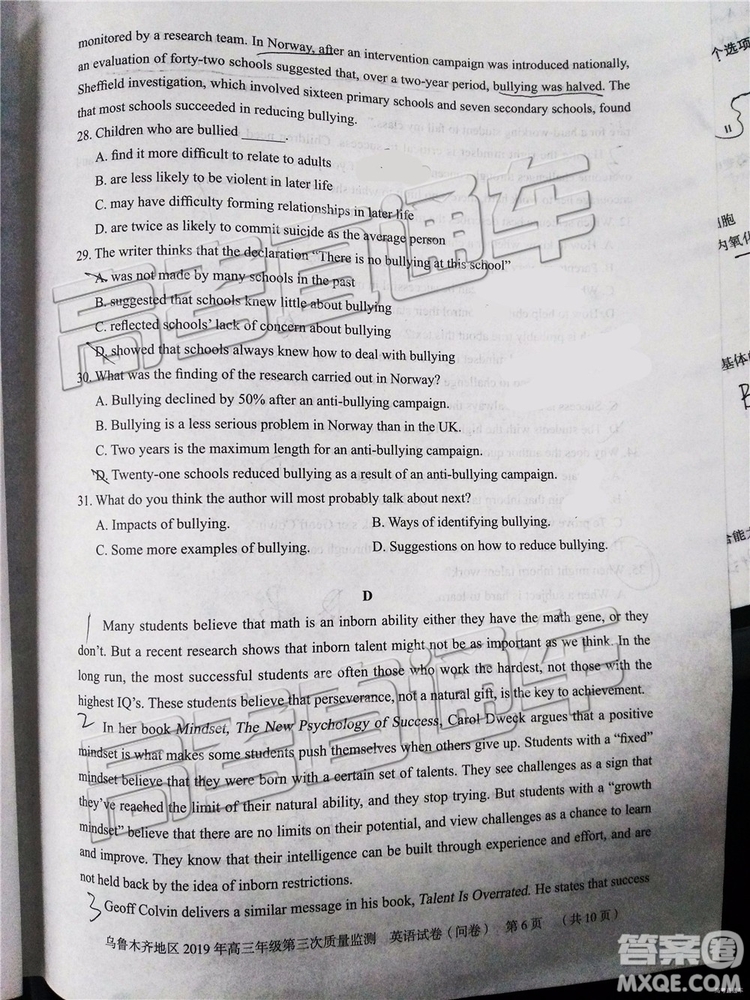 monitored by a research team. In Norway, after an intervention campaign was introduced nationally,
an evaluation of forty-two schools suggested that, over a two-year period, bullying was halved. The
Sheffield investigation, which involved sixteen primary schools and seven secondary schools, found
that most schools succeeded in reducing bullying.
28. Children who are bullied ______.
A. find it more difficult to relate to adults
B. are less likely to be violent in later life
C. may have difficulty forming relationships in later life
D. are twice as likely to commit suicide as the average person
29. The writer thinks that the declaration “There is no bullying at this school”
A. was not made by many schools in the past
B. suggested that schools knew little about bullying
C. reflected schools’ lack of concern about bullying
D. showed that schools always knew how to deal with bullying
30. What was the finding of the research carried out in Norway?
A. Bullying declined by 50% after an anti-bullying campaign.
B. Bullying is a less serious problem in Norway than in the UK.
C. Two years is the maximum length for an anti-bullying campaign.
D. Twenty-one schools reduced bullying as a result of an anti-bullying campaign.
31. What do you think the author will most probably talk about next?
A. Impacts of bullying. B. Ways of identifying bullying.
C. Some more examples of bullying. D. Suggestions on how to reduce bullying.
D
1 Many students believe that math is an inborn ability either they have the math gene, or they
don’t. But a recent research shows that inborn talent might not be as important as we think. In the
long run, the most successful students are often those who work the hardest, not those with the
highest IQ’s. These students believe that perseverance, not a natural gift, is the key to achievement.
2 In her book Mindset, The New Psychology of Success, Carol Dweck argues that a positive
mindset is what makes some students push themselves when others give up. Students with a “fixed”
mindset believe that they were born with a certain set of talents. They see challenges as a sign that
they’ve reached the limit of their natural ability, and they stop trying. But students with a “growth
mindset” believe that there are no limits on their potential, and view challenges as a chance to learn
and improve. They know that their intelligence can be built through experience and effort, and are
not held back by the idea of inborn restrictions.
3 Geoff Colvin delivers a similar message in his book, Talent Is Overrated. He states that success
乌鲁木齐地区2019年高三年级第三次质量监测 英语试卷（问卷） 第6页 （共10页）
个选项
胞
内氧化
基体
高考直通车
高考直通车
答案圈
MXQE.COM